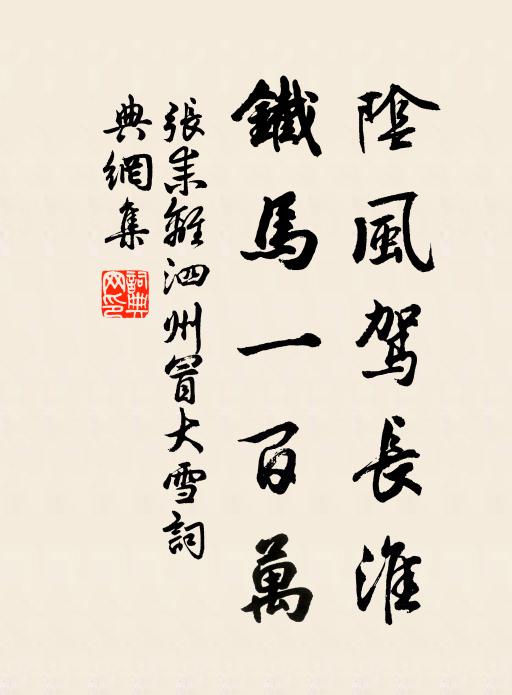 陰風駕長淮
鐵馬一百萬
張耒離泗州冒大雪詞
典網集
詞典
网印